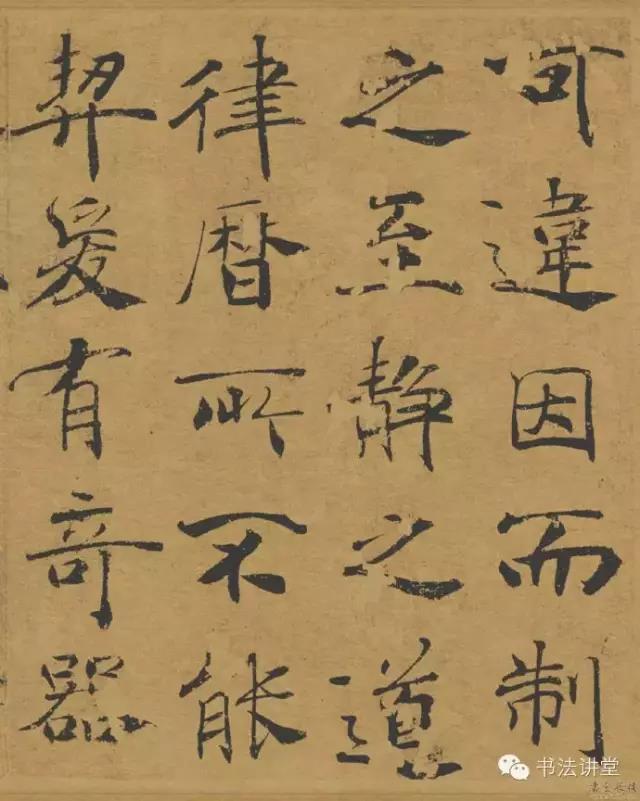 可違因而制
之至静之道
律曆所不能
契爰有奇器
书法讲堂